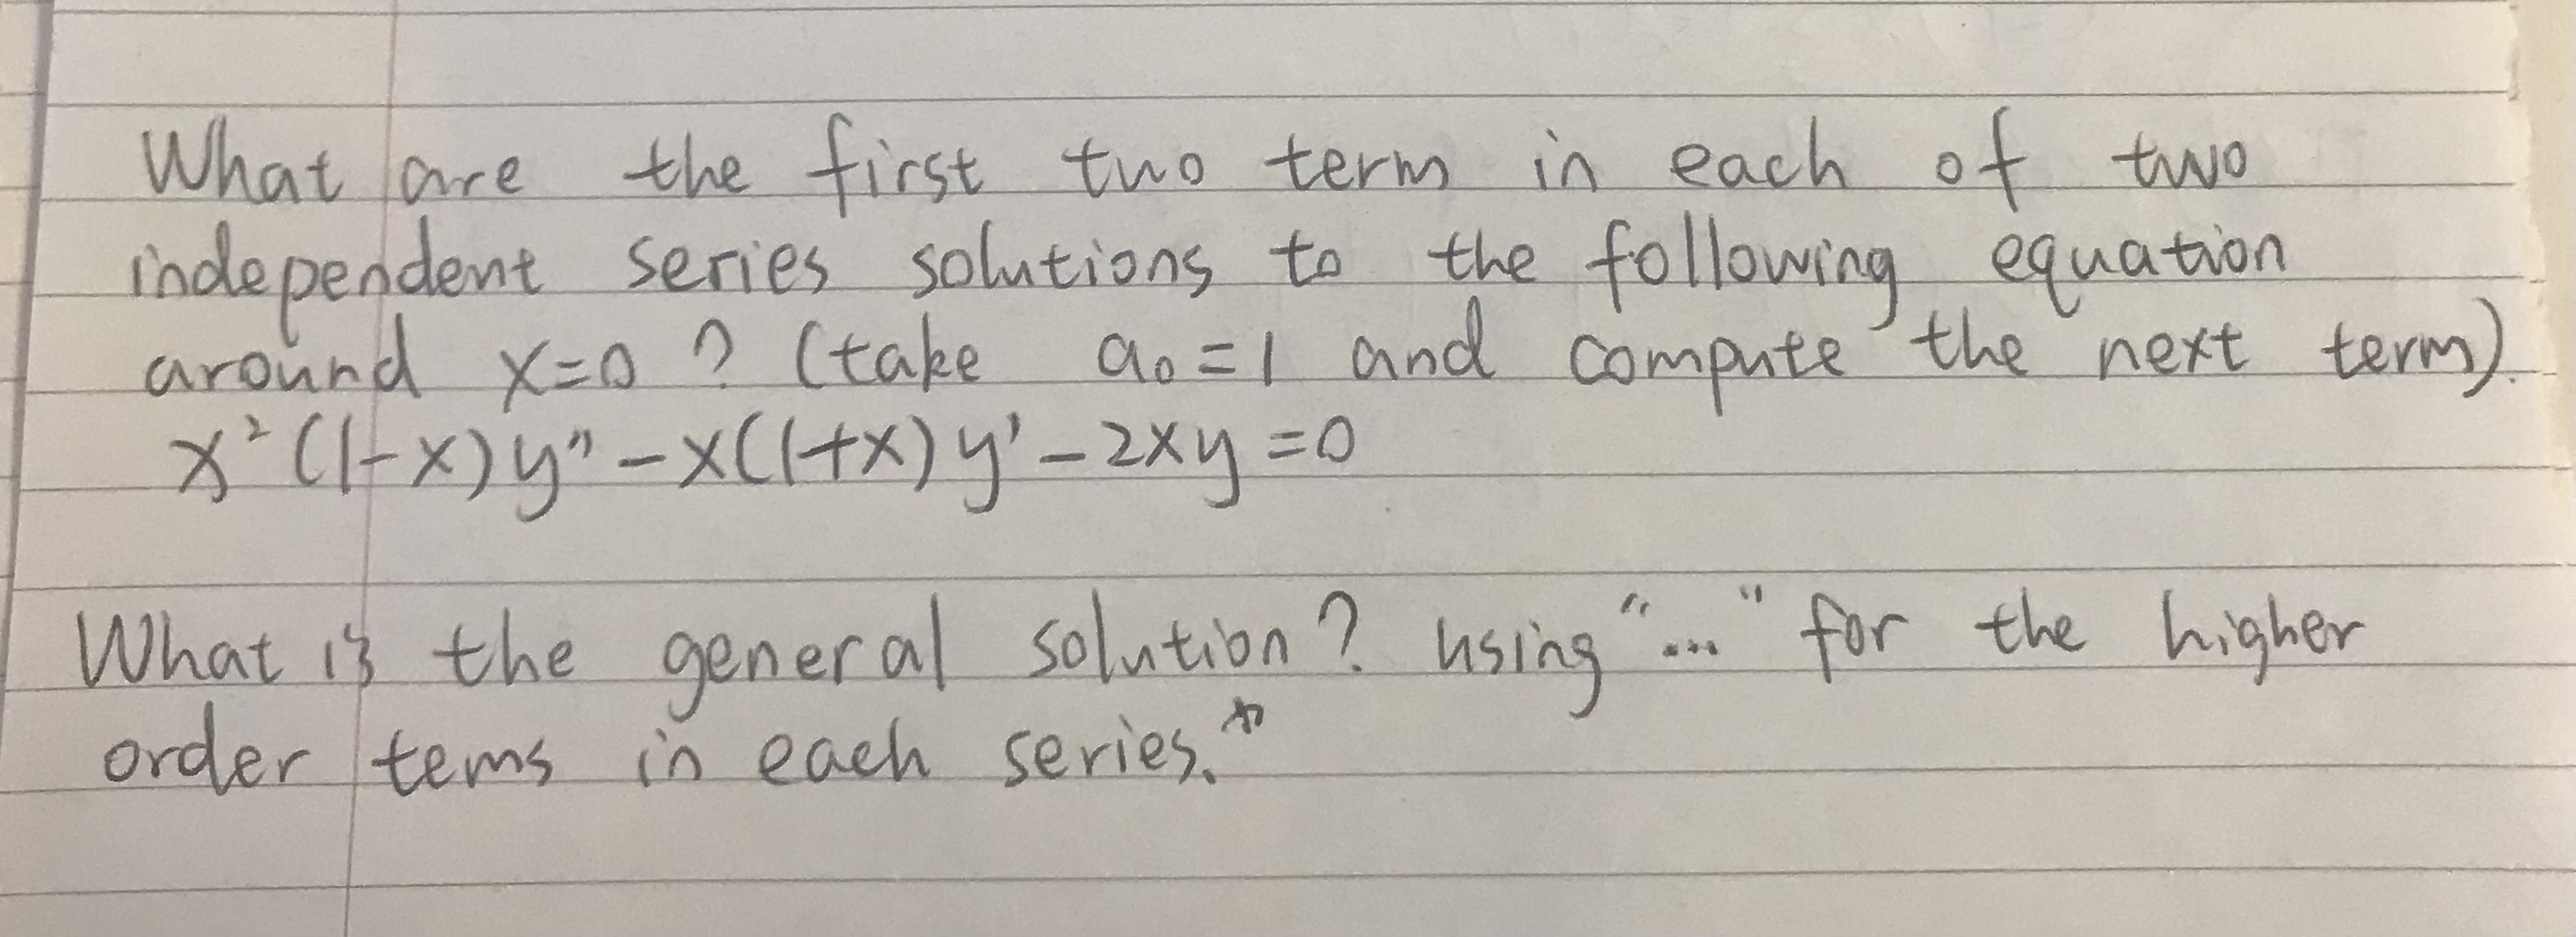 What are the first two term in each of two
independent series solutions to the following equation
around x=0 ? (take a₀=1 and compute the next term).
x²(1-x)y"-x(1+x)y'-2xy=0
What is the general solution? using "..." for the higher
order tems in each series.*